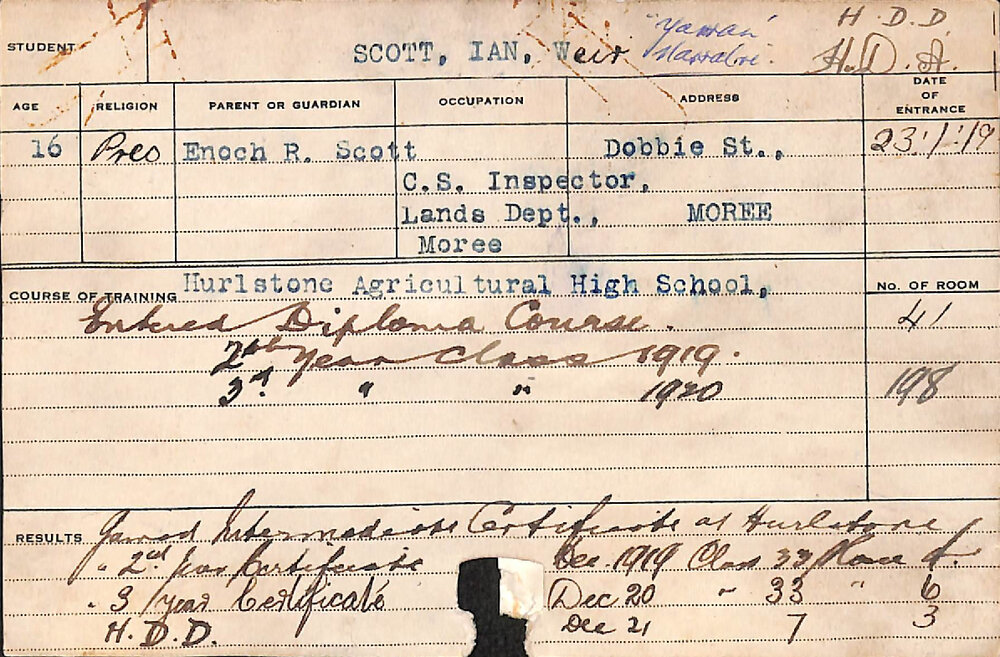 H.D.D.
STUDENT SCOTT, IAN, Weir "Yarran" Narrabri. H.D.A.
AGE RELIGION PARENT OR GUARDIAN OCCUPATION ADDRESS DATE OF ENTRANCE
16 Pres Enoch R. Scott Dobbie St., 23:1:19
C.S. Inspector,
Lands Dept., MOREE
Moree
COURSE OF TRAINING Hurlstone Agricultural High School, No. OF ROOM
Entered Diploma Course. 41
2nd Year Class 1919.
3rd " " 1920 198
RESULTS Gained Intermediate Certificate at Hurlstone
" 2nd Year Certificate Dec. 1919 Class 33 Place 4.
" 3 Year Certificate Dec 20 " 33 " 6
H.D.D. Dec 21 7 3